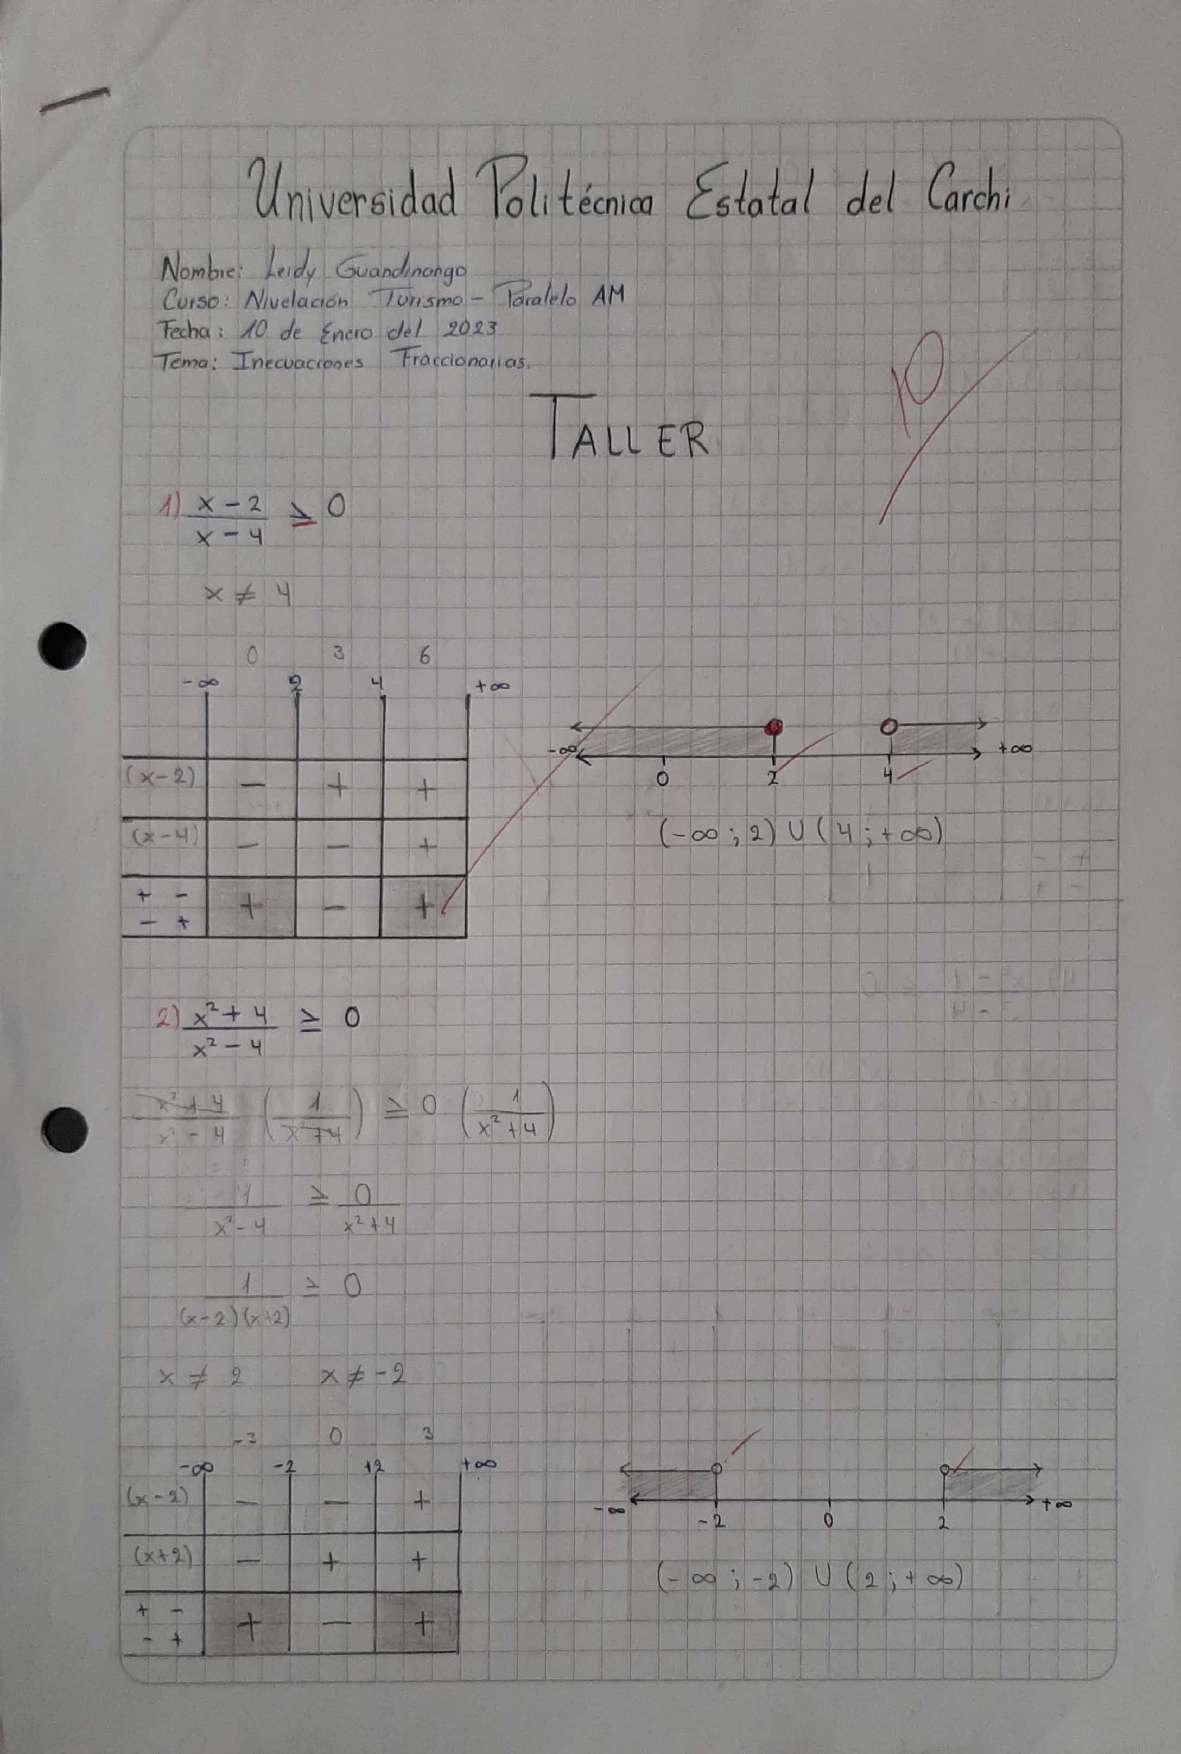 Universidad Politécnica Estatal del Carchi
Nombre: Leidy Guandinango
Curso: Nivelación Turismo - Paralelo AM
Fecha: 10 de Enero del 2023
Tema: Inecuaciones Fraccionarias.
10
TALLER
1) x - 2 / x - 4 ≥ 0
x ≠ 4
0 3 6
-∞ 2 4 +∞
(x-2) - + +
(x-4) - - +
+ - + - +
- +
-∞ +∞
0 2 4
(-∞ ; 2) U (4 ; +∞)
2) x² + 4 / x² - 4 ≥ 0
x² + 4 / x² - 4 (1 / x² + 4) ≥ 0 (1 / x² + 4)
1 / x² - 4 ≥ 0 / x² + 4
1 / (x-2)(x+2) ≥ 0
x ≠ 2 x ≠ -2
-3 0 3
-∞ -2 +2 +∞
(x-2) - - +
(x+2) - + +
+ - + - +
- +
-∞ +∞
-2 0 2
(-∞ ; -2) U (2 ; +∞)